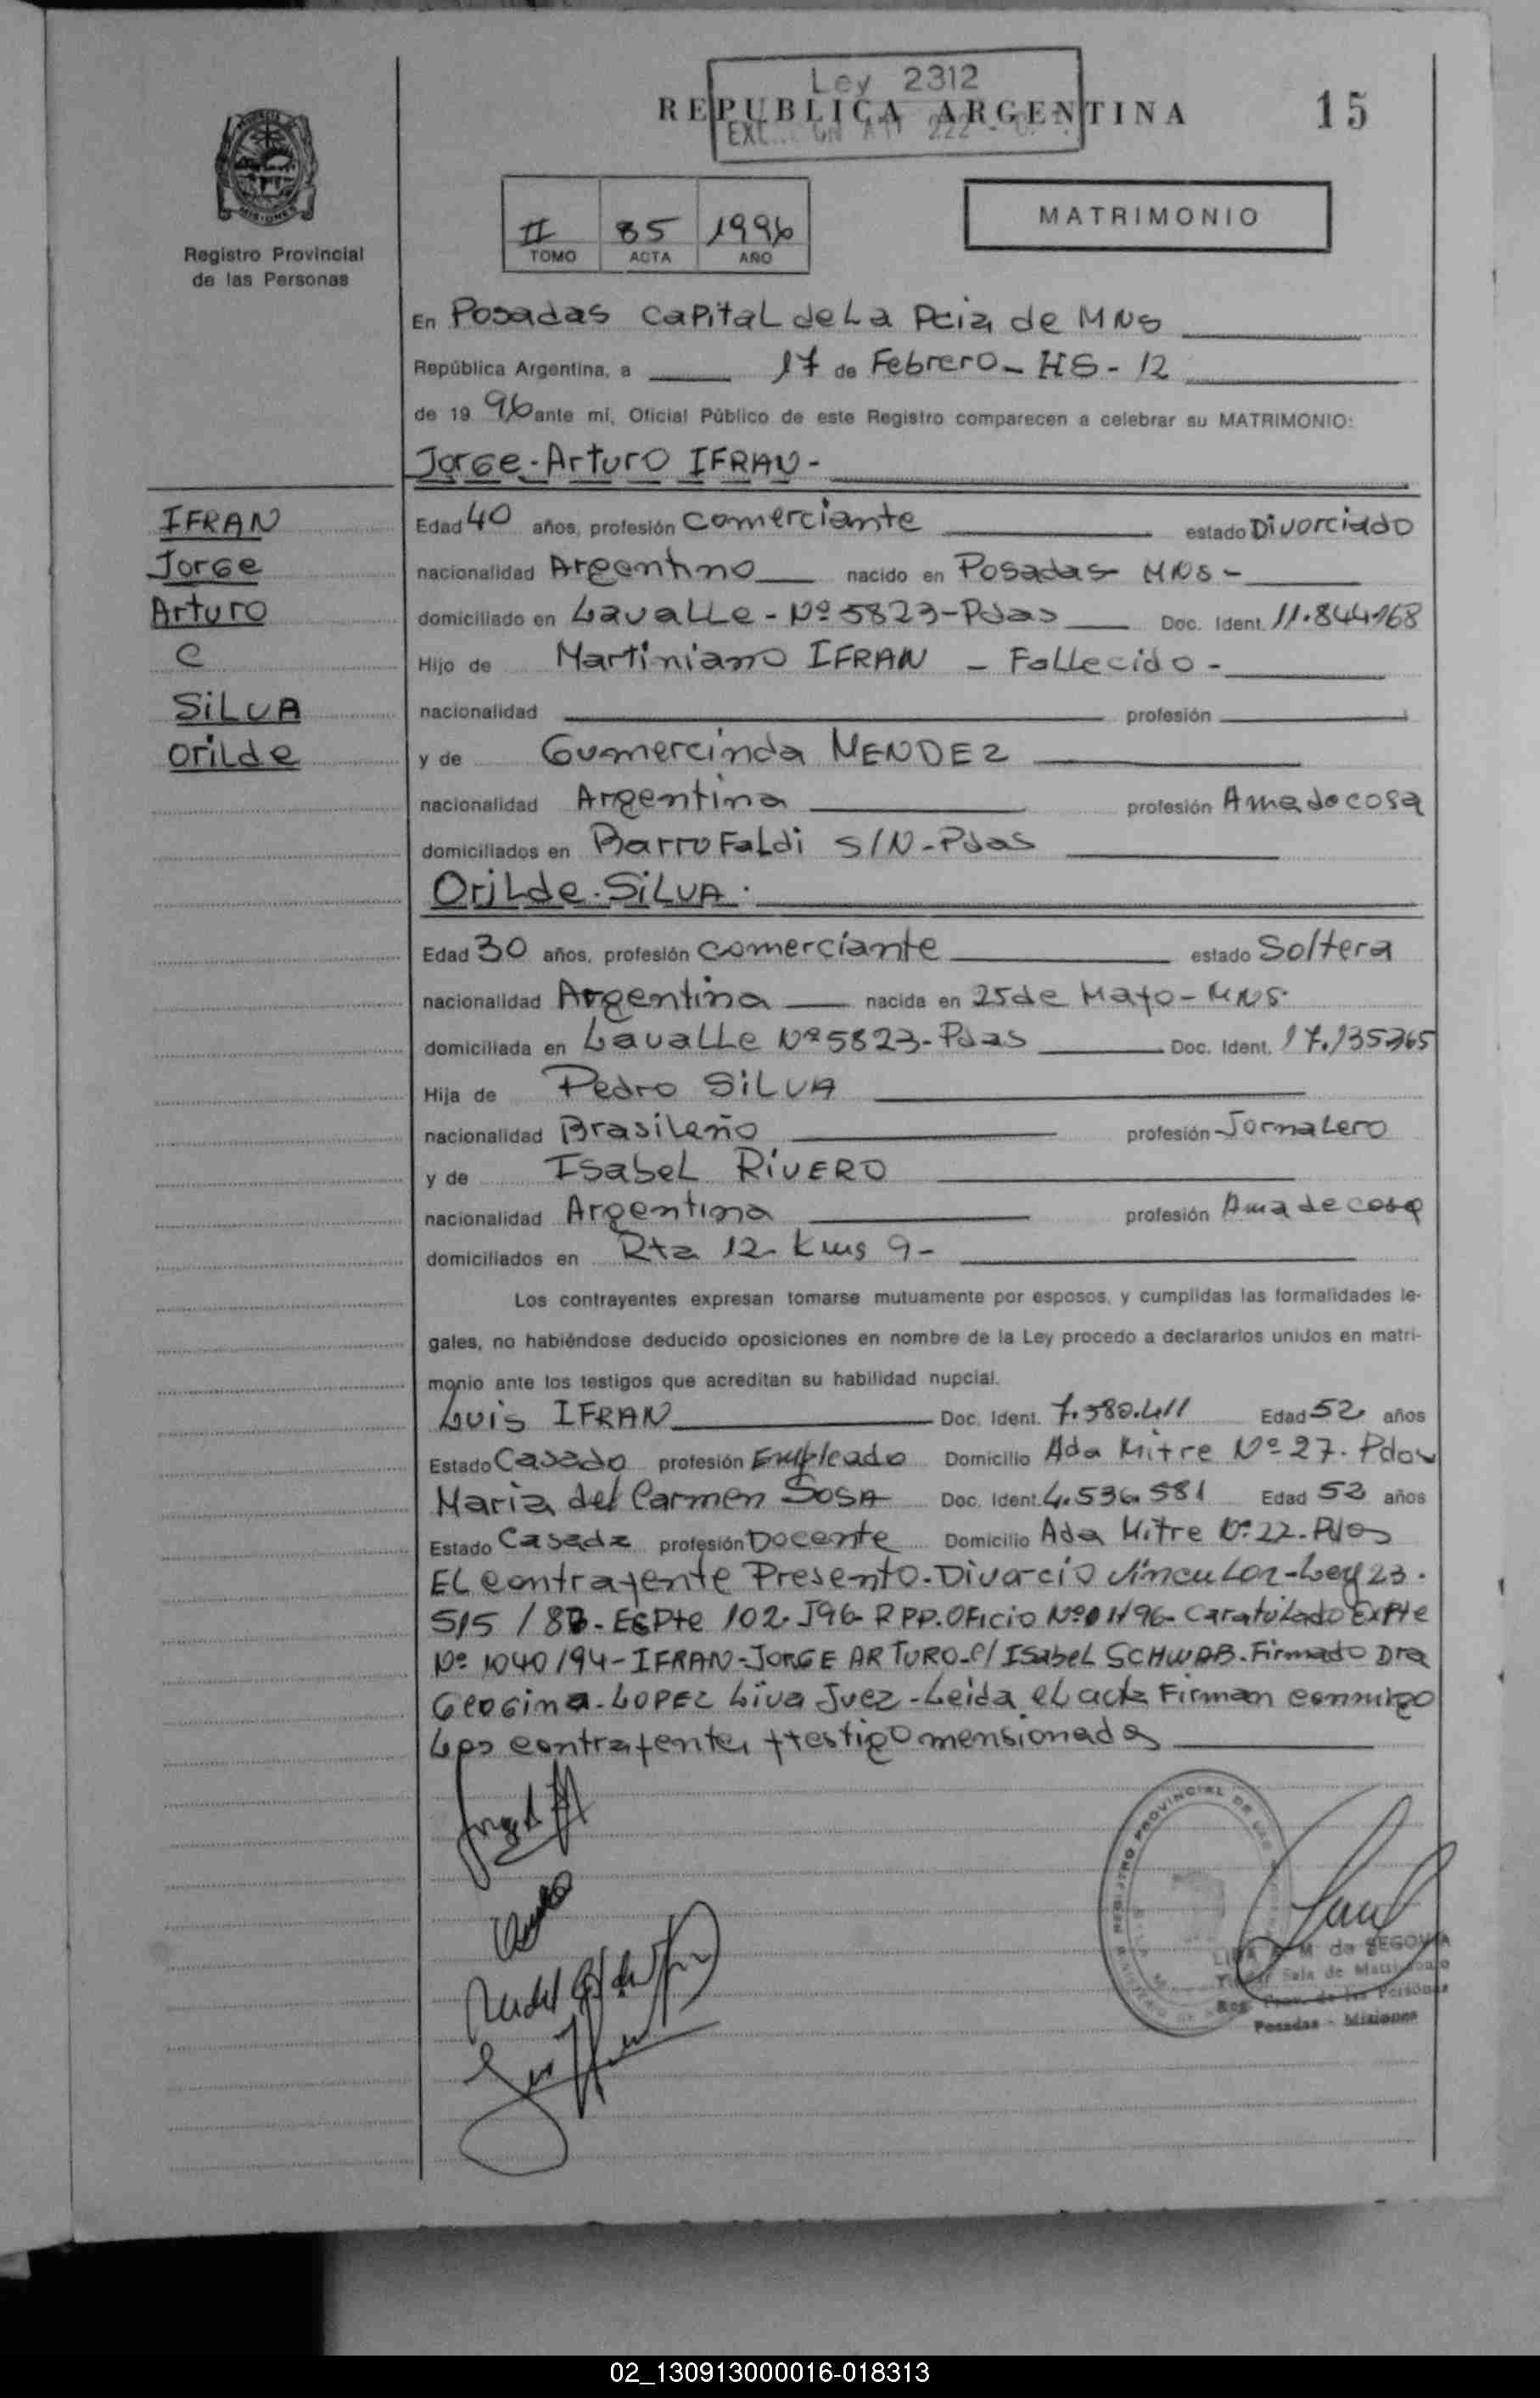 Ley 2312
REPUBLICA ARGENTINA
15
MISIONES
Registro Provincial
de las Personas
II 85 1996
TOMO ACTA AÑO
MATRIMONIO
En Posadas Capital de La Pcia de MNS
República Argentina, a 17 de Febrero - HS - 12
de 19 96 ante mí, Oficial Público de este Registro comparecen a celebrar su MATRIMONIO:
Jorge - Arturo IFRAN -
IFRAN
Jorge
Arturo
C
SiLVA
OriLde
Edad 40 años, profesión Comerciante estado Divorciado
nacionalidad Argentino nacido en Posadas MNS -
domiciliado en LavaLLe - Nº 5823 - Pdas Doc. Ident. 11.844.168
Hijo de Martiniano IFRAN - FaLLecido -
nacionalidad profesión
y de Gumercinda MENDEZ
nacionalidad Argentina profesión Ama de casa
domiciliados en Barro FaLdi S/N - Pdas
OriLde - SiLVA .
Edad 30 años, profesión Comerciante estado Soltera
nacionalidad Argentina nacida en 25 de Mayo - MNS.
domiciliada en LavaLLe Nº 5823 - Pdas Doc. Ident. 17.135.365
Hija de Pedro SiLVA
nacionalidad BrasiLeño profesión JornaLero
y de IsabeL RiVERO
nacionalidad Argentina profesión Ama de casa
domiciliados en Rta 12 - Kms 9 -
Los contrayentes expresan tomarse mutuamente por esposos, y cumplidas las formalidades le-
gales, no habiéndose deducido oposiciones en nombre de la Ley procedo a declararlos unidos en matri-
monio ante los testigos que acreditan su habilidad nupcial.
Luis IFRAN Doc. Ident. 7.580.411 Edad 52 años
Estado Casado profesión Empleado Domicilio Ada Mitre Nº 27. Pdas
Maria del Carmen SOSA Doc. Ident. 4.536.581 Edad 52 años
Estado Casada profesión Docente Domicilio Ada Mitre Nº 22 - Pdas
EL contrayente Presento - Divorcio VincuLar - Ley 23.
515 / 87 - EsPte 102. J96 - RPP. OFicio Nº 01/96 - CaratuLado ExPte
Nº 1040/94 - IFRAN - JORGE ARTURO - c/ ISabeL SCHWAB. Firmado Dra
Geogina - LOPEZ Liva Juez - Leida eL acta Firman conmigo
Los contrayentes y testigo mensionados
REGISTRO PROVINCIAL DE LAS
M. de SEGOVIA
Sala de Matrimonio
Reg. Prov. de las Personas
Posadas - Misiones
02_130913000016-018313